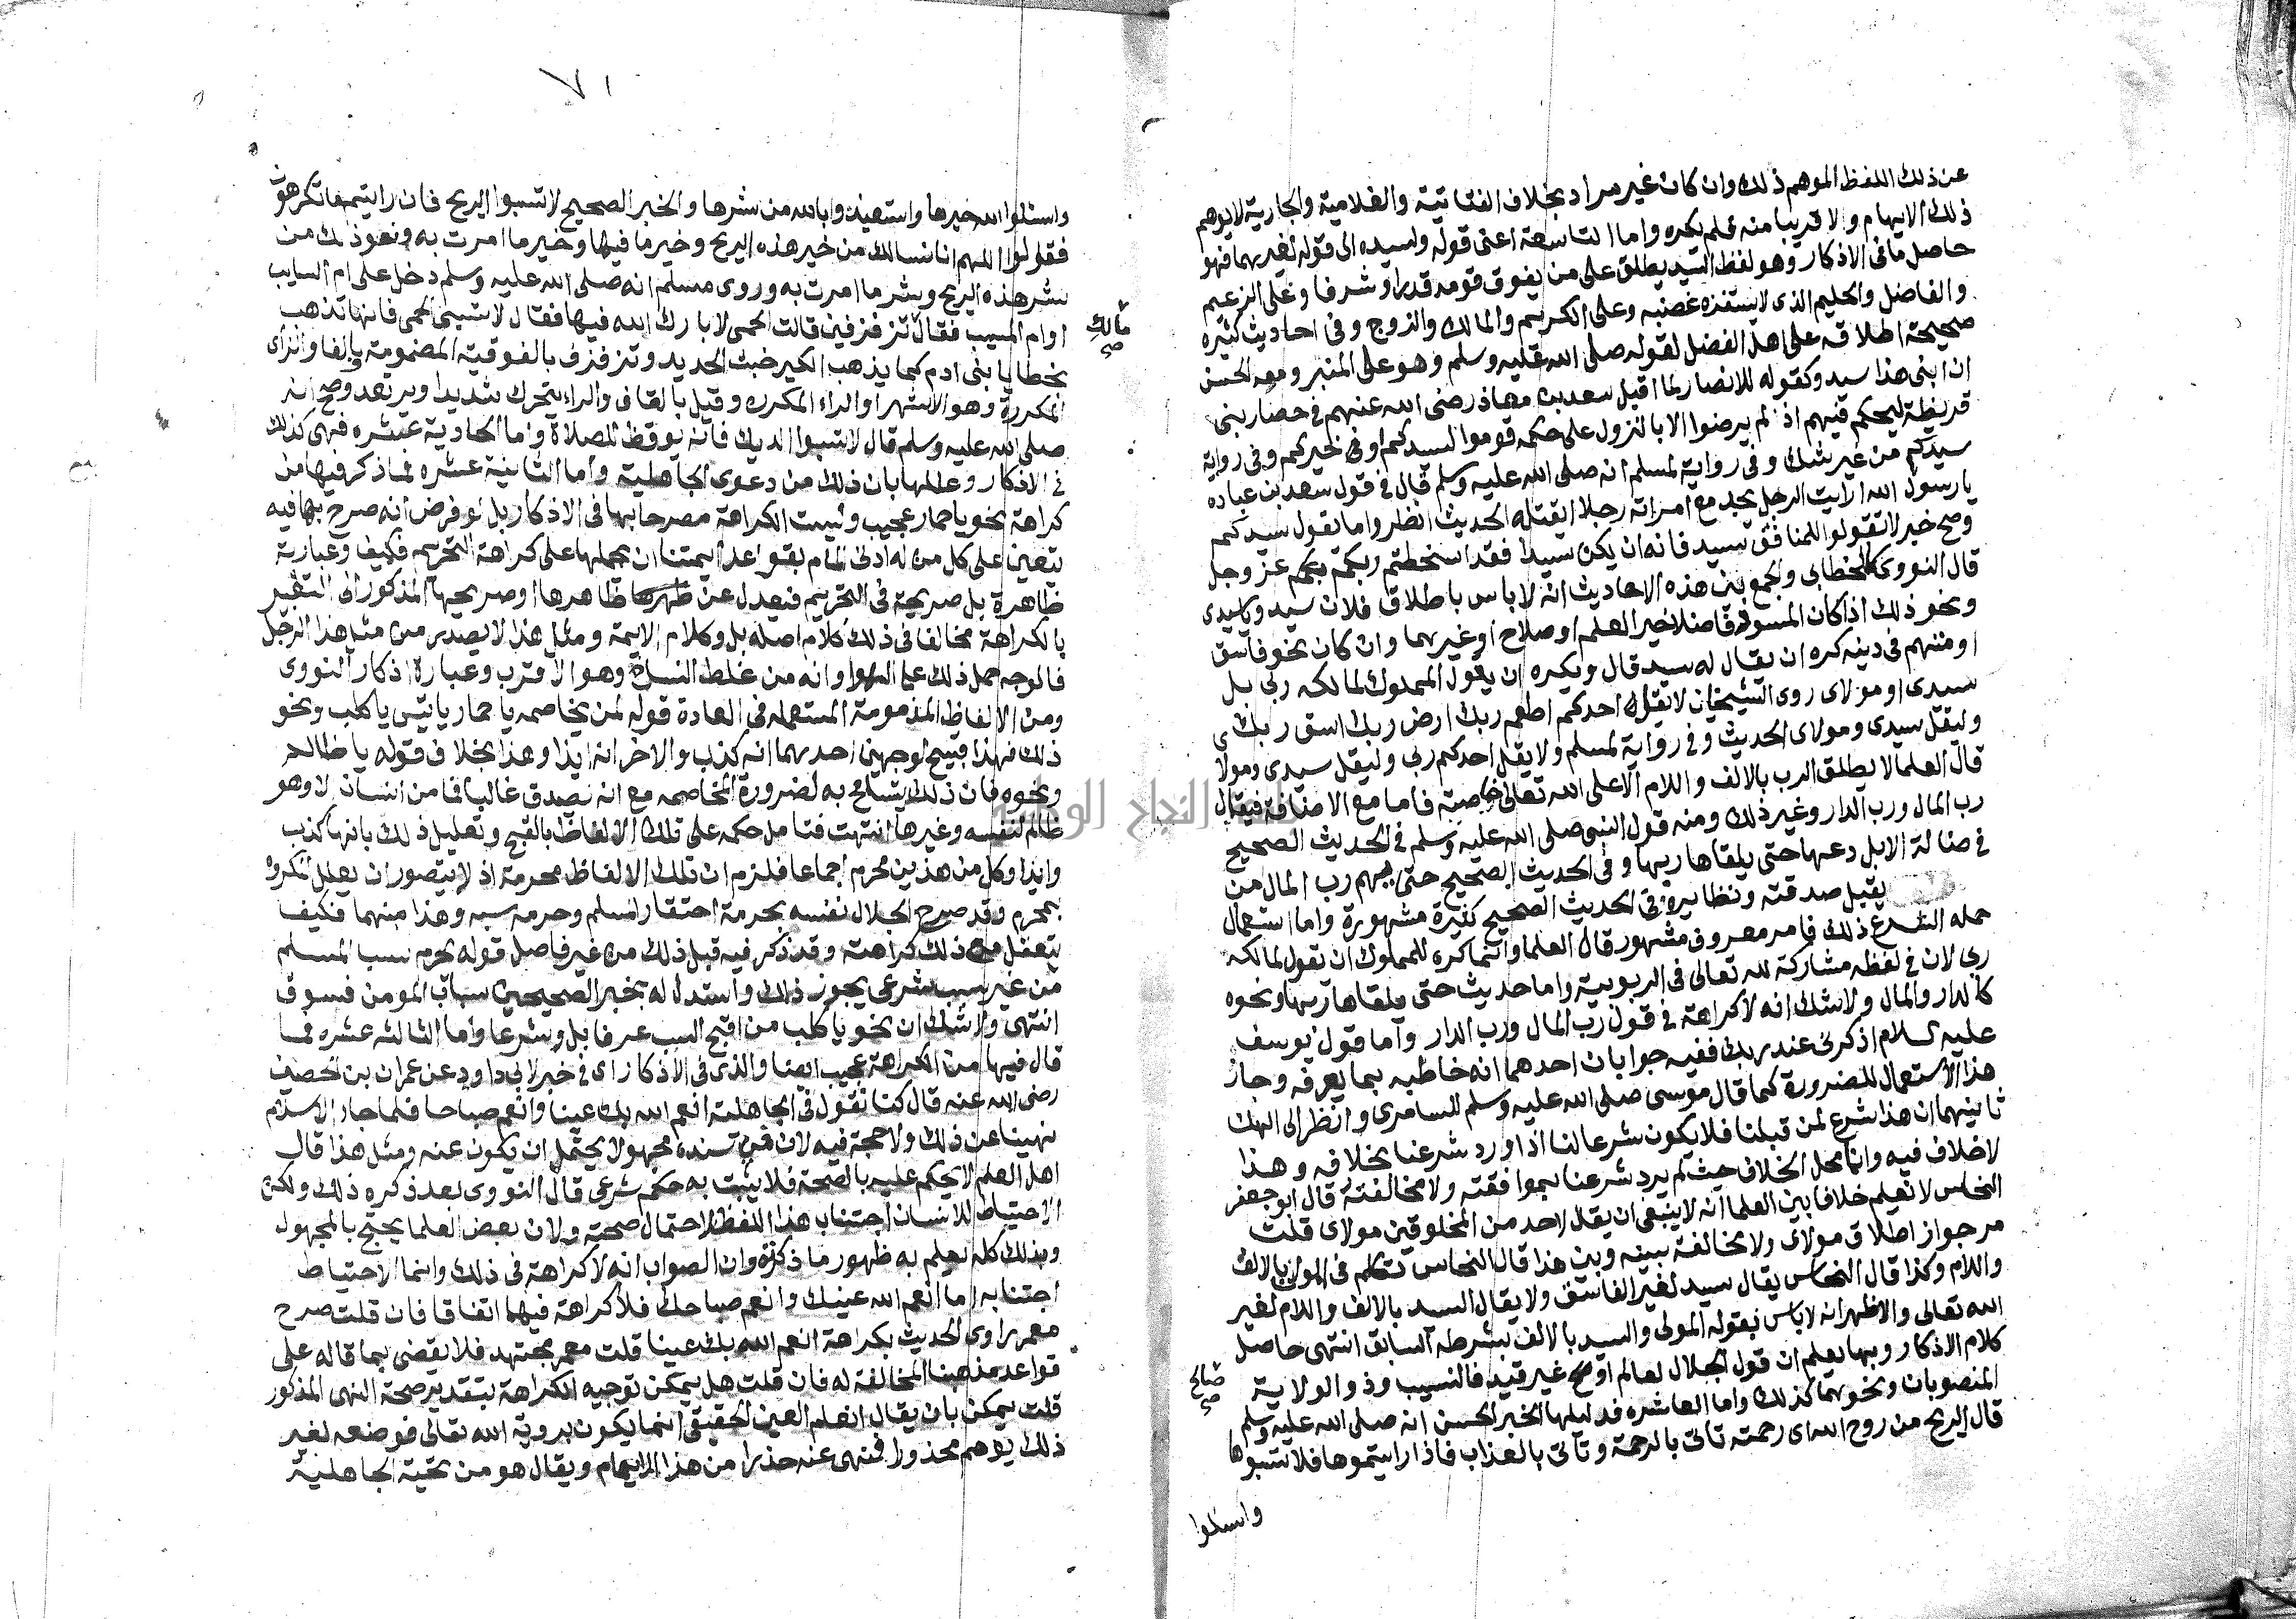 عن ذلك اللفظ الموهم ذلك وان كان غير مراد بخلاف الفتاتية والغلامية والجارية لا يوهم
ذلك الايهام ولا قريبا منه فلم يكره واما التاسعة اعنى قوله ولسيده الى قوله لغيرهما فهو
حاصل ما فى الاذكار وهو لفظ السيد يطلق على من يفوق قومه قدرا وشرفا وعلى الزعيم
والفاضل والحليم الذى لا يستفزه غضبه وعلى الكريم والمالك والزوج وفى احاديث كثيره
صحيحة اطلاقه على اهل الفضل لقوله صلى الله عليه وسلم وهو على المنبر ومعه الحسن
ان ابنى هذا سيد وكقوله للانصار لما اقبل سعد بن معاذ رضى الله عنهم فى حصار بنى
قريظة ليحكم فيهم اذ لم يرضوا الا بالنزول على حكمه قوموا لسيدكم او فى خيركم وفى رواية
سيدكم من غير شك وفى رواية لمسلم انه صلى الله عليه وسلم قال فى قول سعد بن عباده
يا رسول الله ارايت الرجل يجد مع امراته رجلا ايقتله الحديث انظروا ما يقول سيدكم
وصح خبر لا تقولوا للمنافق سيد فانه ان يكن سيدا فقد اسخطتم ربكم عز وجل
قال النووى كالخطابى والجمع بين هذه الاحاديث انه لا باس باطلاق فلان سيد ويا سيدى
ونحو ذلك اذا كان المسود فاضلا خيرا لعلم او صلاح او غيرهما وان كان نحو فاسق
او متهم فى دينه كره ان يقال له سيد قال ويكره ان يقول المملوك لمالكه ربى بل
سيدى او مولاى روى الشيخان لا يقل احدكم اطعم ربك ارض ربك اسق ربك
وليقل سيدى ومولاى الحديث وفى رواية لمسلم ولا يقل احدكم ربى وليقل سيدى ومولاى
قال العلما لا يطلق الرب بالالف واللام الا على الله تعالى خاصة فاما مع الاضافة فيقال
رب المال ورب الدار وغير ذلك ومنه قول النبى صلى الله عليه وسلم فى الحديث الصحيح
فى ضالة الابل دعها حتى يلقاها ربها وفى الحديث الصحيح حتى يهم رب المال من
يقبل صدقته ونظايره فى الحديث الصحيح كثيرة مشهورة واما استعمال
حمله الشرع ذلك فامر معروف مشهور قال العلما وانما كره للمملوك ان يقول لمالكه
ربى لان فى لفظه مشاركة لله تعالى فى الربوبية واما حديث حتى يلقاها ربها ونحوه
كالدار والمال ولا شك انه لا كراهة فى قول رب المال ورب الدار واما قول يوسف
عليه السلام اذكرنى عند ربك ففيه جوابان احدهما انه خاطبه بما يعرفه وجاز
هذا الاستعمال للضرورة كما قال موسى صلى الله عليه وسلم للسامرى وانظر الى الهك
ثانيهما ان هذا شرع لمن قبلنا فلا يكون شرعا لنا اذا ورد شرعنا بخلافه وهذا
لا خلاف فيه وانما محل الخلاف حيث لم يرد شرعنا بموافقته ولا مخالفته قال ابو جعفر
النحاس لا نعلم خلافا بين العلما انه لا ينبغى ان يقال لاحد من المخلوقين مولاى قلت
مر جواز اطلاق مولاى ولا مخالفة بينه وبين هذا قال النحاس تكلم فى المولى بالالف
واللام وكذا قال النحاس يقال سيد لغير الفاسق ولا يقال السيد بالالف واللام لغير
الله تعالى والاظهر انه لا باس بقوله المولى والسيد بالالف بشرطه السابق انتهى حاصل
كلام الاذكار وبها يعلم ان قول الجلال لعالم او صالح غير قيد فالنسيب وذو الولاية
المنصوبان ونحوهما كذلك واما العاشره فدليلها الخبر الحسن انه صلى الله عليه وسلم
قال الريح من روح الله اى رحمته تاتى بالرحمة وتاتى بالعذاب فاذا رايتموها فلا تسبوها
صالح
صح
واسئلوا
٧١
واسئلوا الله خيرها واستعيذوا بالله من شرها والخبر الصحيح لا تسبوا الريح فان رايتم ما تكرهون
فقولوا اللهم انا نسالك من خير هذه الريح وخير ما فيها وخير ما امرت به ونعوذ بك من
شر هذه الريح وشر ما امرت به وروى مسلم انه صلى الله عليه وسلم دخل على ام السايب
او ام المسيب فقال تزفزفين قالت الحمى لا بارك الله فيها فقال لا تسبى الحمى فانها تذهب
مالك
صح
خطايا بنى ادم كما يذهب الكير خبث الحديد وتزفزف بالفوقية المضمومة وبالفا والزاى
المكررة وهو الاشهر او الراء المكرره وقيل بالقاف والراء يتحرك شديدا ويرتعد وصح انه
صلى الله عليه وسلم قال لا تسبوا الديك فانه يوقظ للصلاة واما الحادية عشره فهى كذلك
فى الاذكار وعللها بان ذلك من دعوى الجاهلية واما الثانية عشره فما ذكر فيها من
كراهة نحو يا حمار عجيب وليست الكراهة مصرحا بها فى الاذكار بل لو فرض انه صرح بها فيه
تعين على كل من له ادنى المام بقواعد ايمتنا ان يحملها على كراهة التحريم فكيف وعبارته
ظاهرة بل صريحة فى التحريم فيعدل عن ظاهرها او صريحها المذكور الى التعبير
بالكراهة مخالفا فى ذلك كلام اصله بل وكلام الايمة ومثل هذا لا يصدر من مثل هذا الرجل
فالوجه حمل ذلك على السهو او انه من غلط النساخ وهو الاقرب وعبارة اذكار النووى
ومن الالفاظ المذمومة المستعمله فى العادة قوله لمن يخاصمه يا حمار يا تيس يا كلب ونحو
ذلك فهذا قبيح لوجهين احدهما انه كذب والاخر انه ايذا وهذا بخلاف قوله يا ظالم
ونحوه فان ذلك يتسامح به لضرورة المخاصمه مع انه يصدق غالبا فما من انسان الا وهو
ظالم لنفسه وغيرها انتهت فتامل حكمه على تلك الالفاظ بالقبح وتعليل ذلك بانها كذب
وايذا وكل من هذين محرم اجماعا فلزم ان تلك الالفاظ محرمة اذ لا يتصور ان يعلل المكروه
بمحرم وقد صرح الجلال نفسه بحرمة احتقار المسلم وحرمة سبه وهذا منهما فكيف
يتعقل مع ذلك كراهته وقد ذكر فيه قبل ذلك من غير فاصل قوله يحرم سب المسلم
من غير سبب شرعى يجوز ذلك واستدل له بخبر الصحيحين سباب المومن فسوق
انتهى ولا شك ان نحو يا كلب من اقبح السب عرفا بل وشرعا واما الثالثه عشره فما
قال فيها من الكراهة عجيب ايضا والذى فى الاذكار اى فى خبر لابى داود عن عمران بن الحصين
رضى الله عنه قال كنا نقول فى الجاهلية انعم الله بك عينا وانعم صباحا فلما جاء الاسلام
نهينا عن ذلك ولا حجة فيه لان فى سنده مجهولا يحتمل ان يكون عنه ومثل هذا قال
اهل العلم لا يحكم عليه بالصحة فلا يثبت به حكم شرعى قال النووى بعد ذكره ذلك ولكن
الاحتياط للانسان اجتناب هذا اللفظ لاحتمال صحته ولان بعض العلما يحتج بالمجهول
وبذلك كله يعلم به ظهور ما ذكرته وان الصواب انه لا كراهة فى ذلك وانما الاحتياط
اجتنابه اما انعم الله عينك وانعم صباحك فلا كراهة فيهما اتفاقا فان قلت صرح
معمر راوى الحديث بكراهة انعم الله بك عينا قلت معمر مجتهد فلا يقضى بما قاله على
قواعد مذهبنا المخالفة له فان قلت هل يمكن توجيه الكراهة بتقدير صحة النهى المذكور
قلت يمكن بان يقال انعام العين الحقيقى انما يكون بروية الله تعالى فوضعه لغير
ذلك يوهم محذورا فنهى عنه حذرا من هذا الايهام ويقال هو من تحية الجاهلية